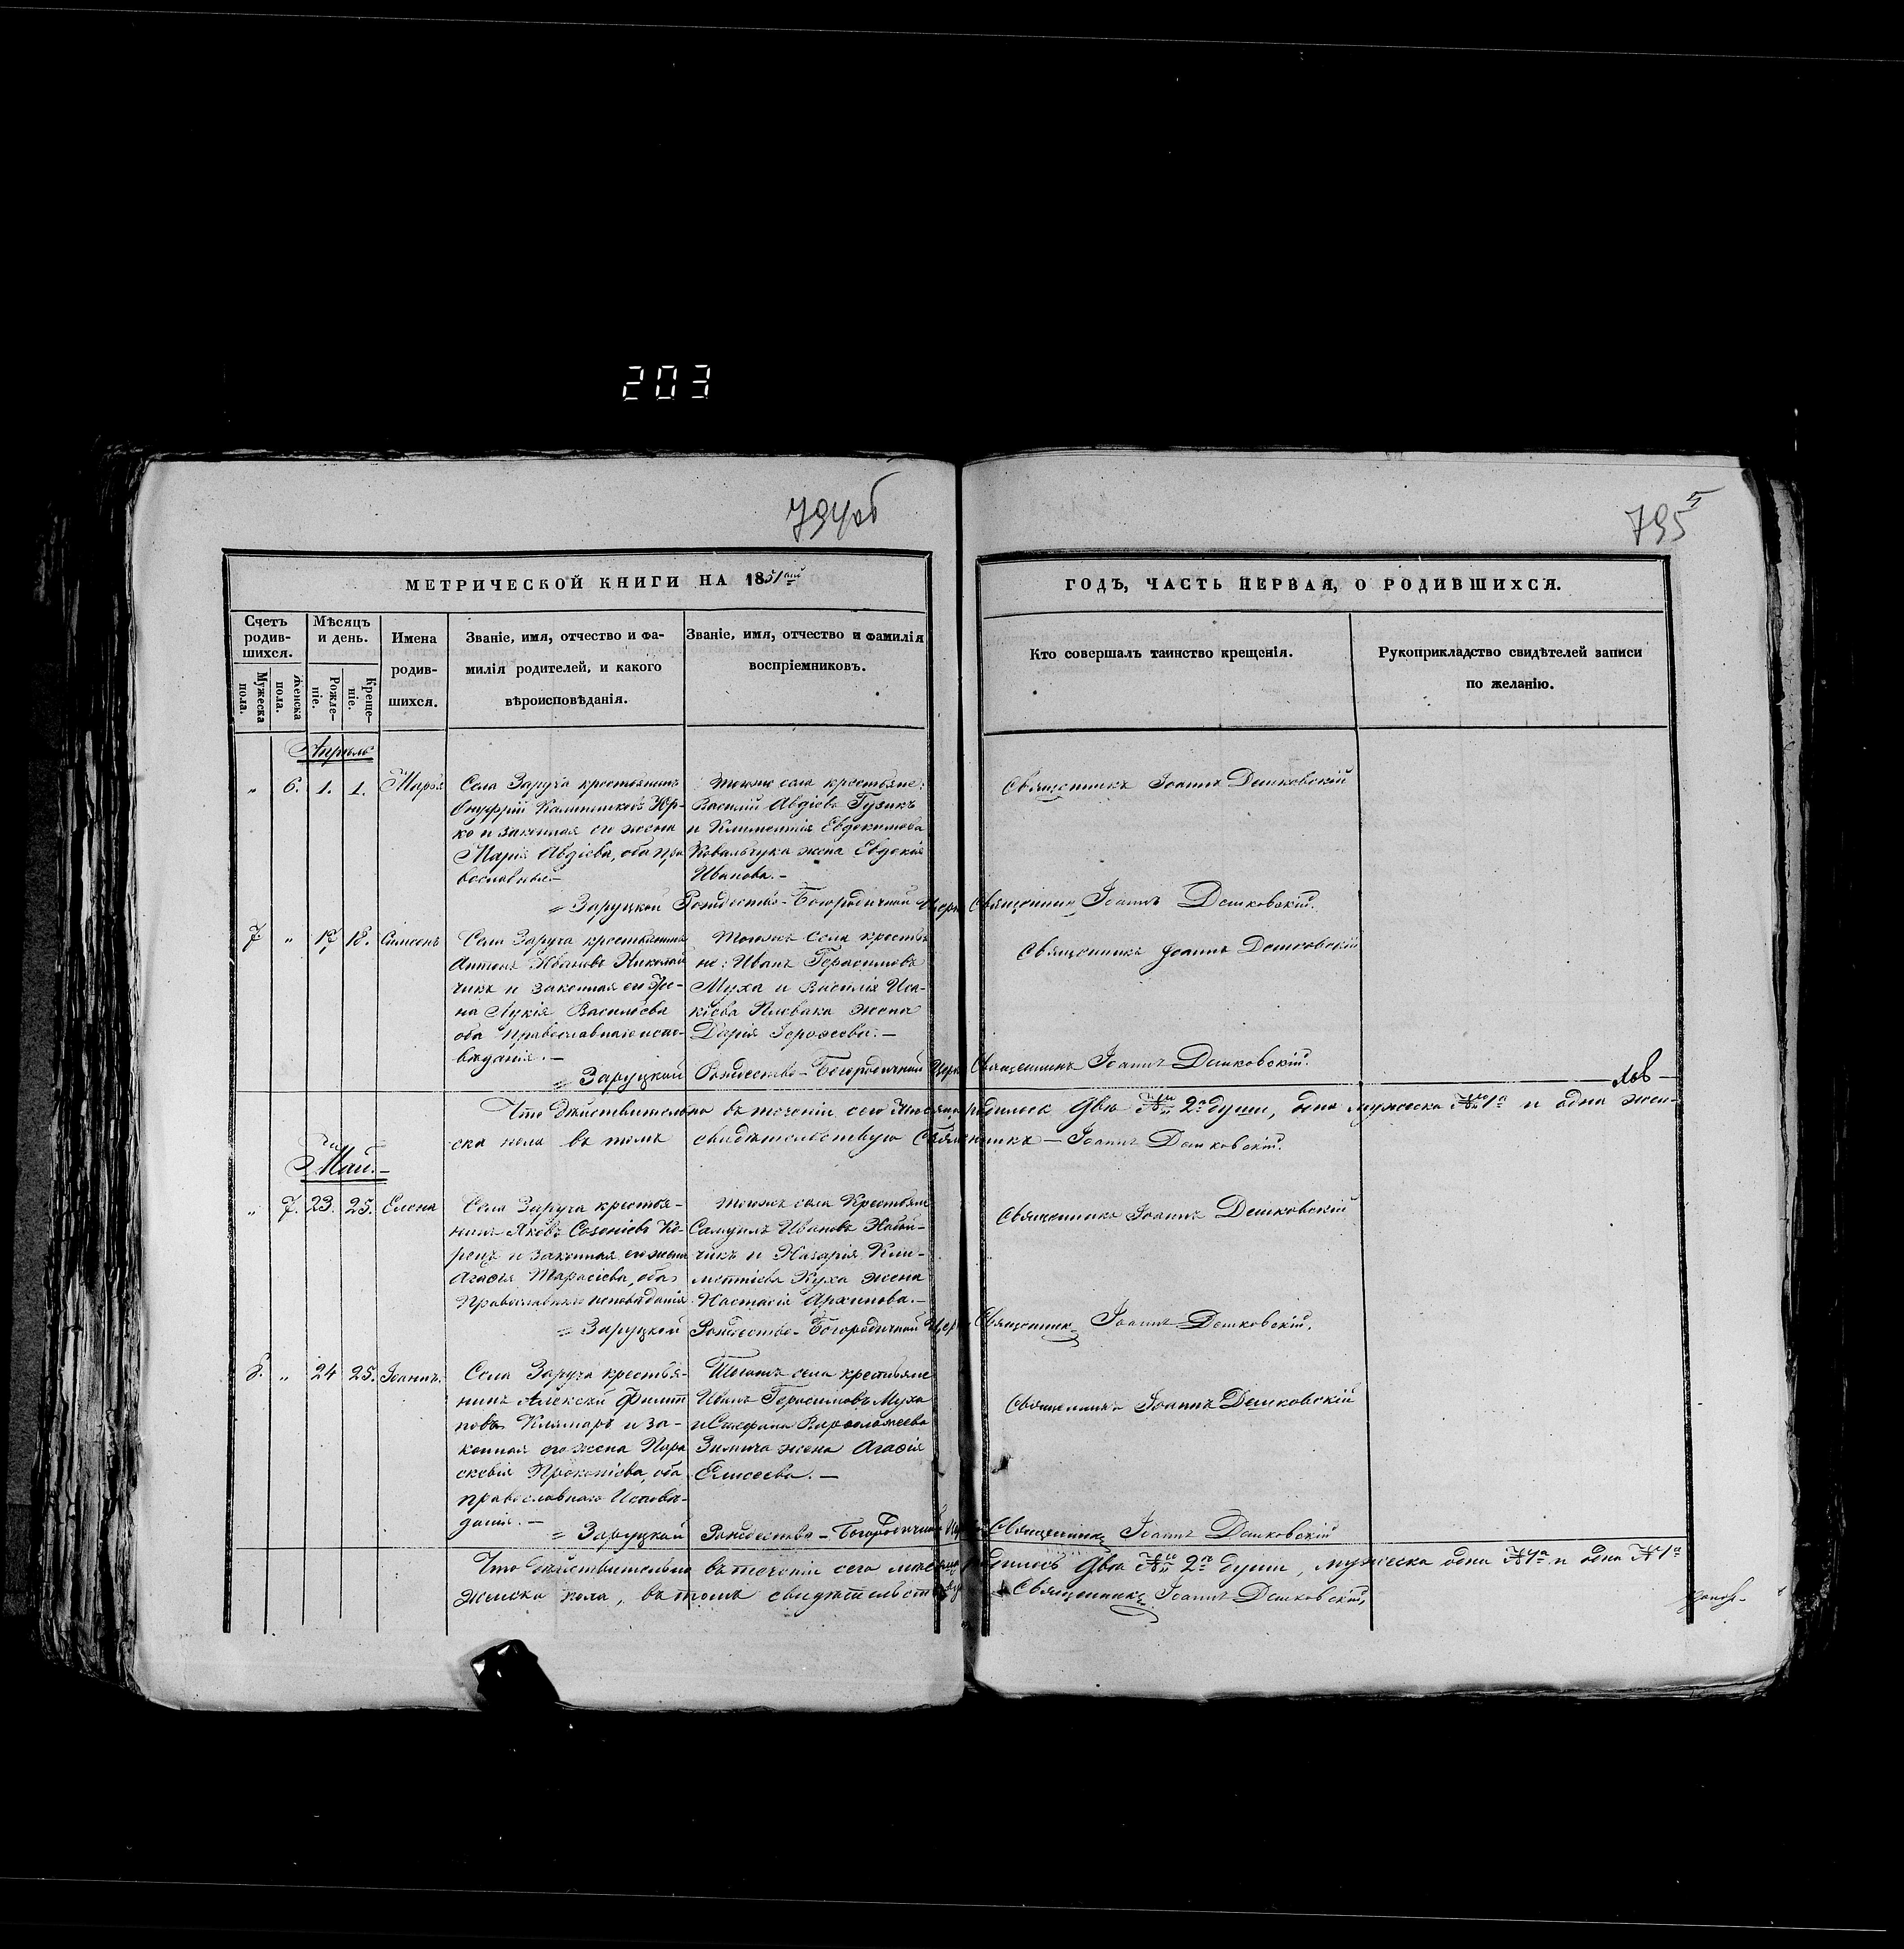 203
794об
795
5
МЕТРИЧЕСКОЙ КНИГИ НА 1851 ый
ГОДЪ, ЧАСТЬ ПЕРВАЯ, О РОДИВШИХСЯ.
Счетъ родив-шихся.
Мужеска пола.
Женска пола.
Мѣсяцъ и день.
Рожде-ніе.
Креще-ніе.
Имена
родив-
шихся.
Званіе, имя, отчество и фа-
милія родителей, и какого
вѣроисповѣданія.
Званіе, имя, отчество и фамилія
воспріемниковъ.
Кто совершалъ таинство крещенія.
Рукоприкладство свидѣтелей записи
по желанію.
Апрѣль
" 6. 1. 1. Марѳа
Села Заруча крестьянинъ
Онуфрій Калинниковъ Юр-
ко и законная его жена
Марія Авдіева, оба пра
вославные.-
Тогоже села крестьяне:
Василій Авдіевъ Гузикъ
и Климентія Евдокимова
Ковальчука жена Евдокія
Иванова.-
Священникъ Іоаннъ Дешковскій
= Заруцкой Рождество-Богородичной Церк Священник Іоаннъ Дешковскій.
7. " 17 18. Симеонъ
Села Заруча крестьянинъ
Антонъ Ивановъ Николай
чикъ и законная его Же-
на Лукія Васильева
оба православнаго испо-
вѣданія.-
Тогожъ Села крестья
не: Иванъ Герасимовъ
Муха и Василія Иса-
кіева Плевака жена
Дарія Ерофеева.-
Священникъ Іоаннъ Дешковскій
= Заруцкой Рождество-Богородичной Церк Священникъ Іоаннъ Дешковскій.
Что дѣйствительно въ теченіи сего Мѣсяца родилось двѣ № 2а души, одна мужеска № 1а и одна жен-
ска пола въ томъ свидѣтельствую Священникъ - Іоаннъ Дешковскій.
Май.-
" 7. 23. 25. Елена
Села Заруча крестья-
нинъ Яковъ Созоніевъ Ко-
рецъ и законная его жена
Агафія Тарасіева, оба
Православнаго исповѣданія.
Тогожъ села Крестьяне
Самуилъ Ивановъ
чикъ и Назарія Кли-
ментіева Жуха жена
Настасія Архипова.-
Священникъ Іоаннъ Дешковскій
= Заруцкой Рождество-Богородичной Церк Священник Іоаннъ Дешковскій.
8. " 24 25. Іоаннъ.
Села Заруча крестья-
нинъ Алексѣй Филип
повъ Клямаръ и за-
конная его жена Пара
скевія Прокопіева, оба
православнаго Исповѣ-
данія.-
Тогожъ села крестьяне
Иванъ Герасимовъ Муха
и Стефана Варфоломеева
Зимича жена Агафія
Елисеева.-
Священникъ Іоаннъ Дешковскій
= Заруцкой Рождество-Богородичной Священникъ Іоаннъ Дешковскій
Что дѣйствительно въ теченіи сего мѣсяца родилось двѣ № 2а души, мужеска одна № 1а и одна № 1а
женска пола, въ томъ свидѣтельствую Священникъ Іоаннъ Дешковскій